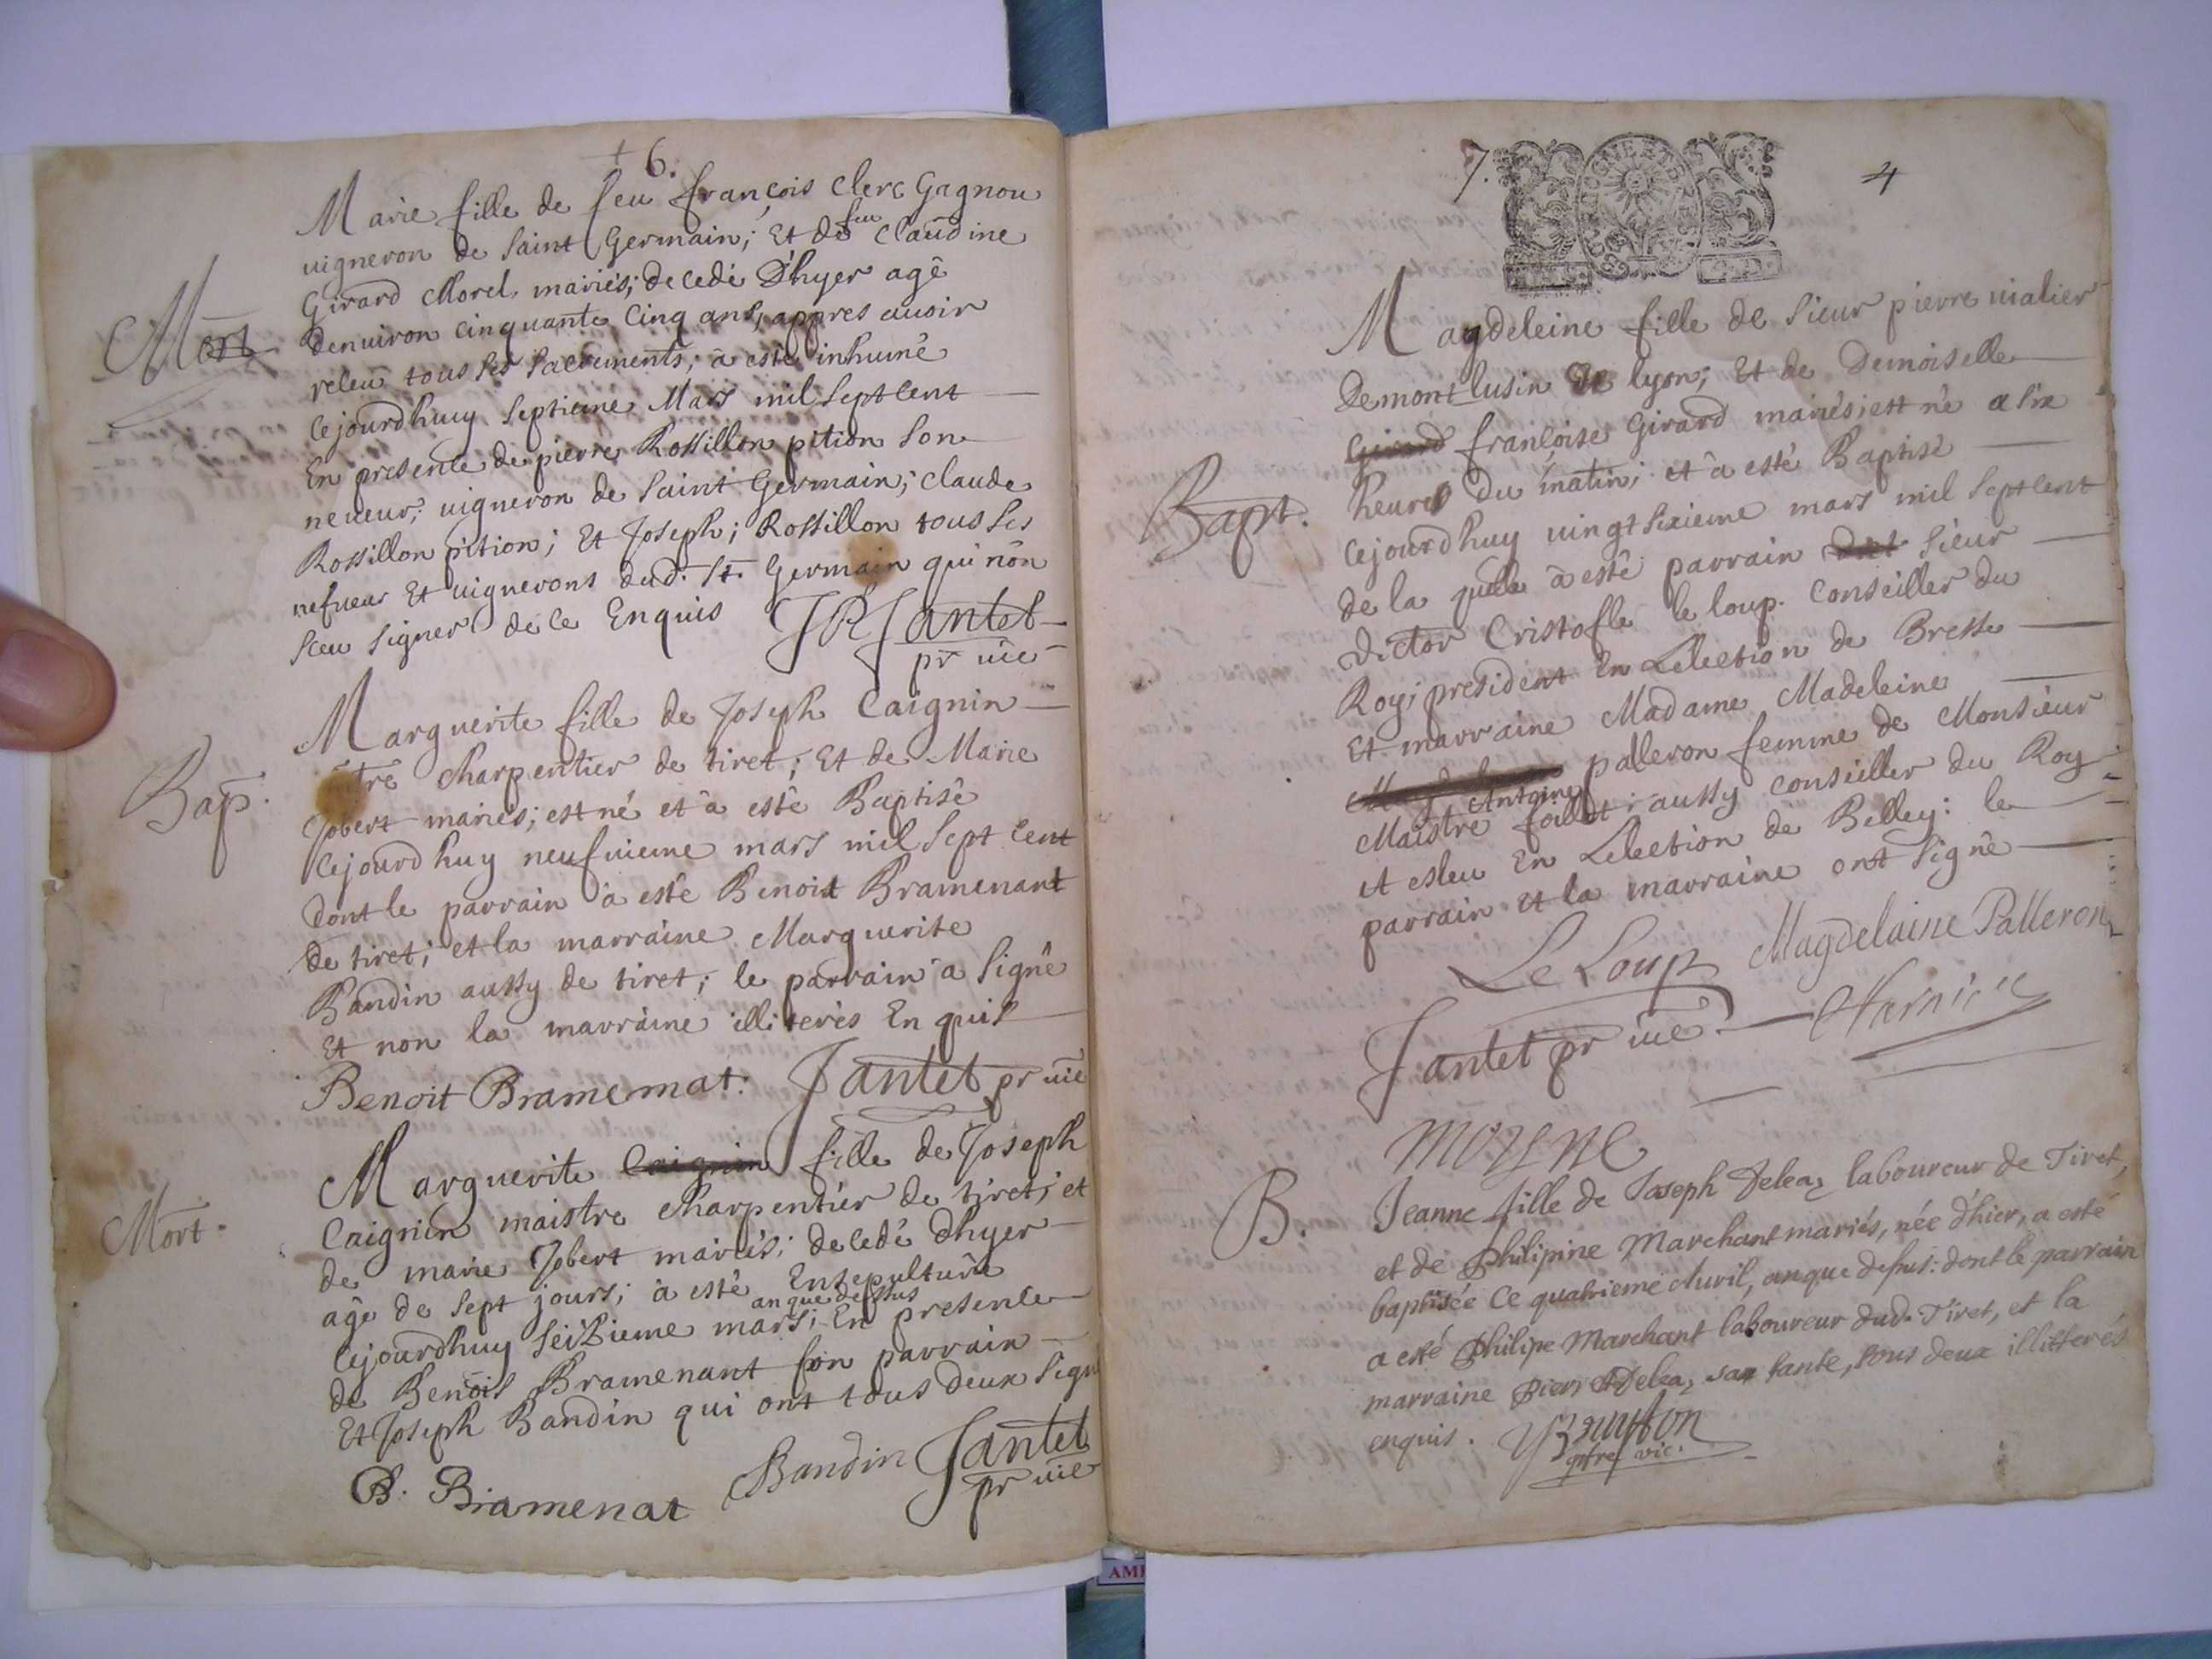 + 6.
Marie fille de feu françois Clerc Gagnou
vigneron de Saint Germain; Et de feu Claudine
Girard Morel, mariés; decedé D'hyer agé
Mort
denuiron cinquante Cinq ans; appres auoir
receu tous ses Sacrements; à esté inhumé
Cejourdhuy Septieme Mars mil Septcent
En presence de pierre Rossillon pition son
neueur; vigneron de Saint Germain; Claude
Rossillon pition; Et Joseph; Rossillon tous ses
nefueur Et uignerons dud. St. Germain qui nòn
sceu signer de ce Enquis JR Jantet
pr uic
Marguerite fille de Joseph Caignin
tre charpentier de tiret; Et de Marie
Bap.
Jobert mariés; est né et à esté Baptisé
Cejourdhuy neufuieme mars mil Sept Cent
Dont le parrain à esté Benoit Bramenant
de tiret; et la marraine Marguerite
Bandin aussy de tiret; le parrain a Signé
Et non la marraine illiterés En quis
Benoit Bramemat. Jantet pr uic
Marguerite Caignin fille de Joseph
Caignin maistre charpentier de tiret; et
Mort.
de marie Jobert mariés; decedé dhyer
agé de Sept jours; à esté Ensepulturé
Cejourdhuy seizieme mars; an que dessus En presence
de Benoist Bramenant son parrain
Et Joseph Bandin qui ont tous deux Signé
B. Bramenat Bandin Jantet
pr uic
7. 4
Magdeleine fille de Sieur pierre vialier
Demontlusin de lyon; Et de Demoiselle
Girard françoise Girard mariés; est né a six
Bapt.
heures du matin; et à esté Baptisé
Cejourdhuy vingt sixieme mars mil Septcent
de la quele à esté parrain Sieur
Victor Cristofle le loup. Conseiller du
Roy; president En Lelection de Bresse
Et marraine Madame Madeleine
palleron femme de Monsieur
Maistre Antoine aussy conseiller du Roy
et esleu En Lelection de Belley: le
parrain et la marraine ont Signé
Le Loup Magdelaine Palleron
Jantet pr uic.
Moyne
B.
Jeanne fille de Joseph Delea, laboureur de Tiret,
et de Philipine Marchant mariés, née d'hier, a esté
baptisée Ce quatrieme Auril, an que dessus: dont le parrain
a esté Philipe Marchant laboureur dud. Tiret, et la
marraine Pierrette Delea, sa tante, tous deux illitterés
enquis.
ptre vic.